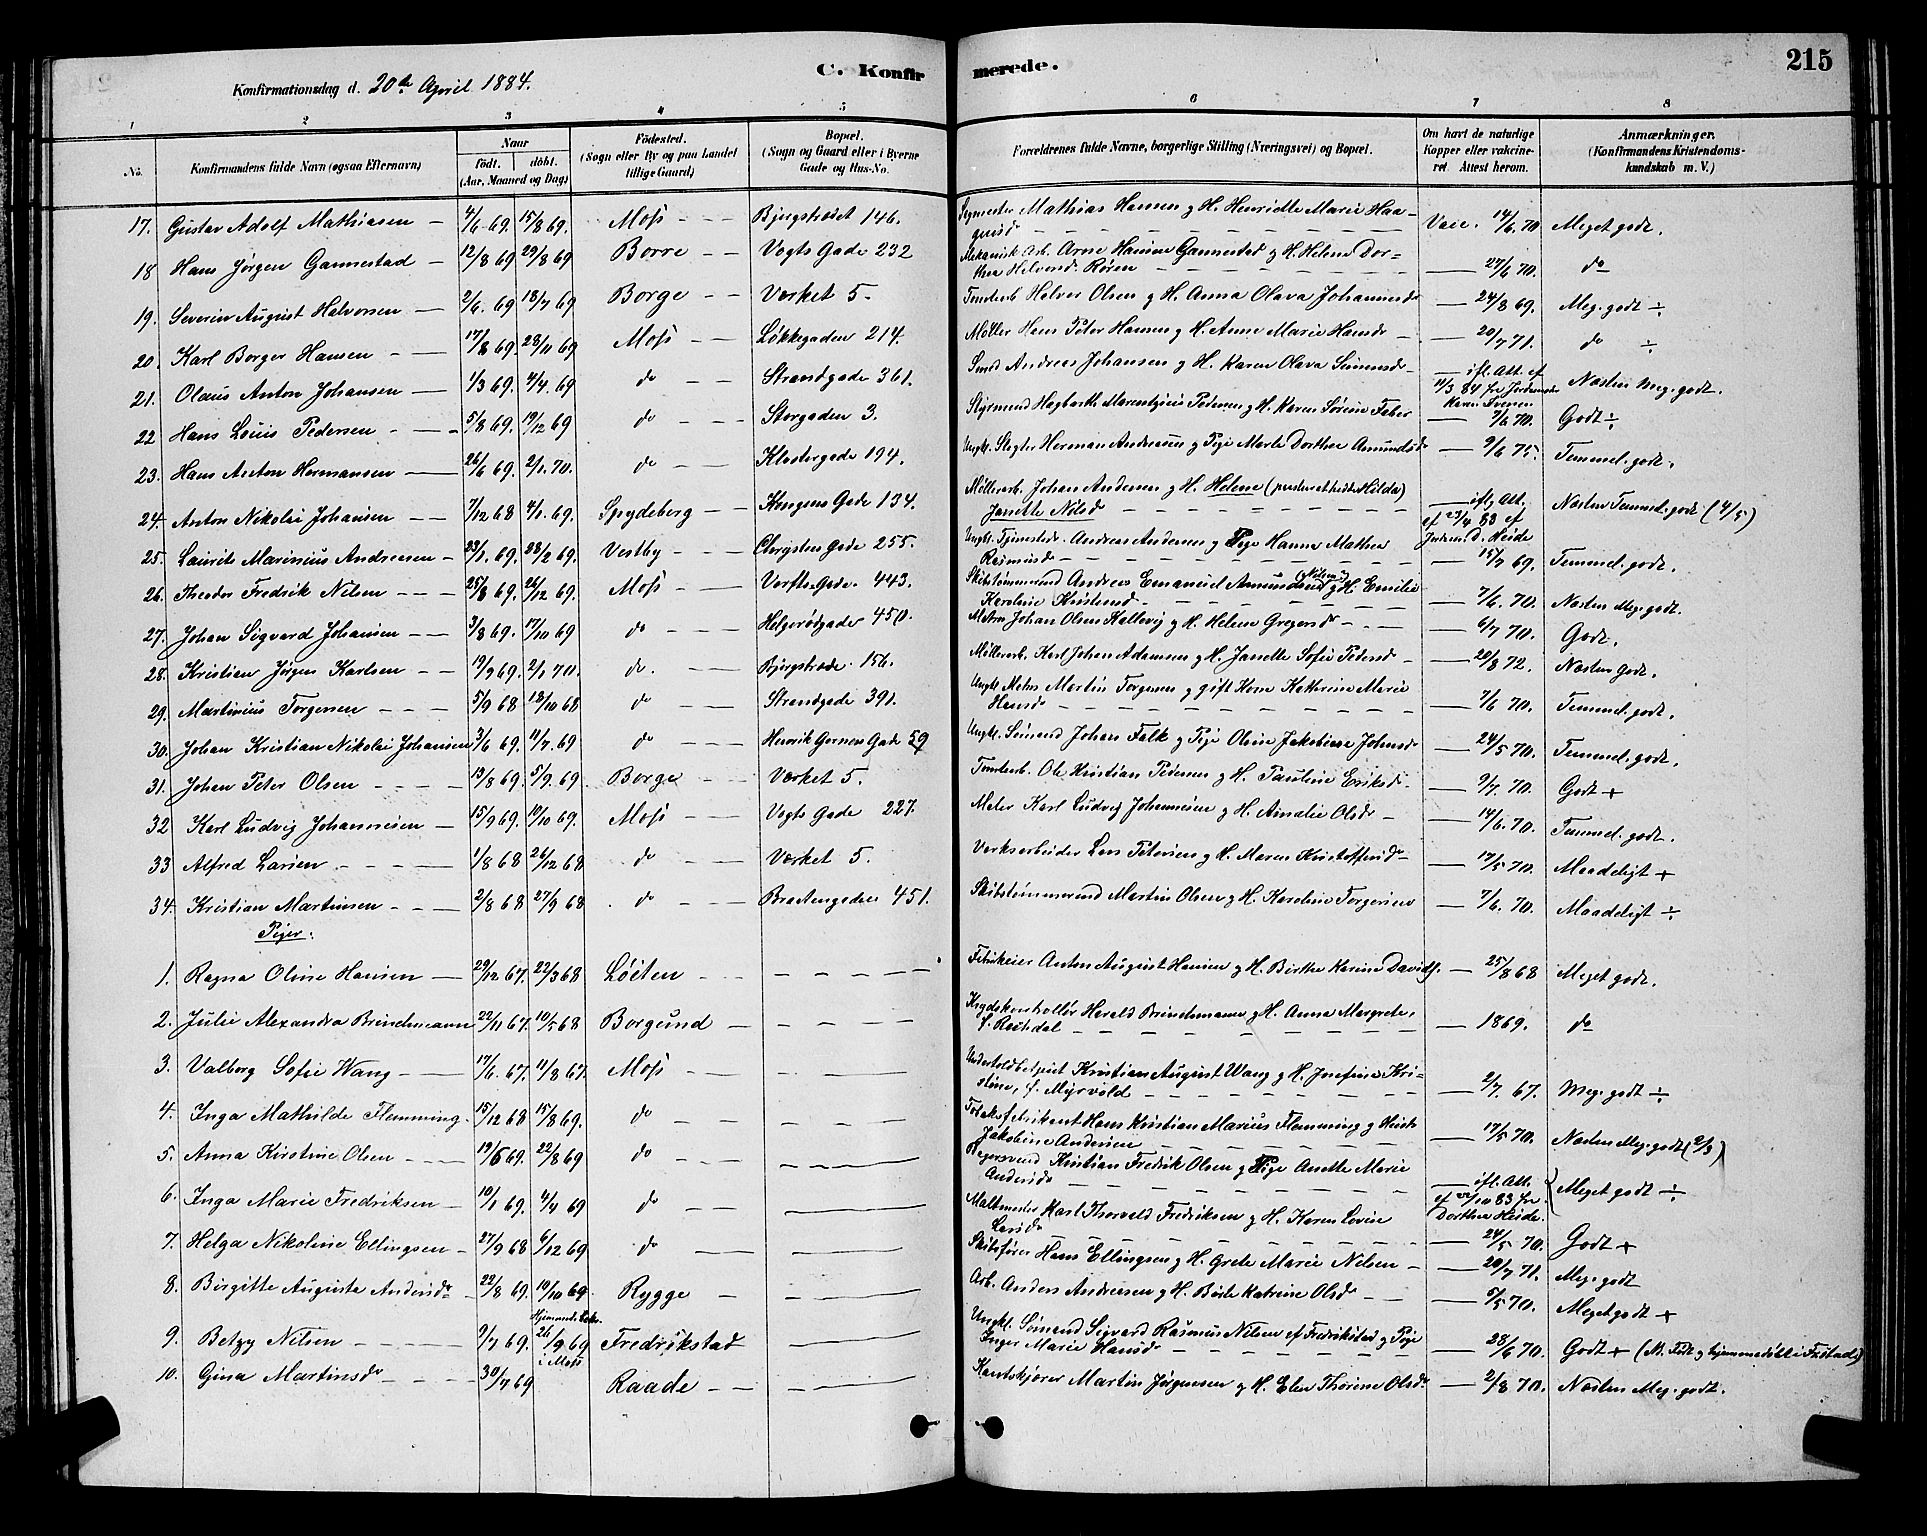 C. Konfirmerede.
215
Konfirmationsdag d. 20de April 1884.
1 2 3 4 5 6 7 8
No. Konfirmandens fulde Navn (ogsaa Efternavn) Naar födt. döbt. (Aar, Maaned og Dag) Födested. (Sogn eller By og paa Landet tillige Gaard) Bopæl. (Sogn og Gaard eller i Byerne Gade og Hus-No. Forældrenes fulde Navne, borgerlige Stilling (Næringsvei) og Bopæl. Om havt de naturlige Kopper eller vakcineret. Attest herom. Anmærkninger. (Konfirmandens Kristendomskundskab m. V.)
17. Gustav Adolf Mathiasen — 4/6 69. 15/8 69. Moss Bjergstrædet 146. Mathias Hansen g H. Henriette Marie Haaquisd Vacc. 14/6 70 Meget godt.
18 Hans Jørgen Gannestad — 12/8 69 29/8 69 Borre Vogts Gade 232 Mekanisk Arb. Arne Hansen Gannestad g H. Helene Dorthea Helvensd. Røren — 27/6 70. do
19. Severin August Halvorsen — 2/6 69 18/7 69 Borge Værket 5. Helver Olsen g H. Anna Olava Johannesdr — 24/8 69. Meg. godt ÷
20. Karl Borger Hansen — 17/8 69. 28/11 69 Moss Løkkegaden 214. Møller Hans Peter Hansen g H. Anne Marie Hansdr — 20/7 71. do ÷
21. Olaus Anton Johansen — 1/3 69. 4/4 69 do Strandgade 361. Smed Andreas Johansen g H. Karen Olava Simensdr — ifl. Att. af 11/3 84 fra Jordemoder Karen Iversen Næsten Meg. godt.
22 Hans Louis Pedersen — 5/8 69. 19/12 69 do Storgaden 3. Styrmand Hagbarth Marentzius Pedersen g H. Karen Sørine Feber — 7/6 70. Godt ÷
23. Hans Anton Hermansen — 26/6 69. 2/1 70. do Klostergade 194. Ungk. Slagter Herman Andreasen g Pige Marte Dorthea Amundsdr — 9/6 75. Temmel. godt.
24. Anton Nikolai Johansen — 7/12 68 4/1 69. Spydeberg Kongens Gade 134. Møllerarb. Johan Andersen g H. Helene (Hilda) Janette Nilsd — ifl. Att. af 23/4 83 af Jordem. D. Heide Næsten Temmel. godt (4/5)
25. Laurits Marinius Andreasen — 23/1 69. 28/2 69 Vestby Chrystens Gade 255. Ungk. Tjenestedr. Andreas Andersen g Pige Hanna Mathea Rasmusdr — 15/7 69. Temmel. godt.
26. Theodor Fredrik Nilsen — 25/8 69. 26/12 69. Moss Værfts-Gade 443. Skibstømmermand Andreas Emanuel Amundsen (Nilsen) g H. Emilie Karoline Kristensd — 7/6 70. Næsten Meg. godt.
27. Johan Sigvard Johansen — 3/8 69. 17/10 69 do Helgerødgaden 450. Matros Johan Olsen Kallevig g H. Helene Gregersdr — 6/7 70. Godt.
28. Kristian Jørgen Karlsen — 19/9 69. 2/1 70. do. Bjergstræde 156. Møllerarb. Karl Johan Adamsen g H. Janette Sofie Pedersdr — 20/8 72. Næsten Godt.
29. Martinius Torgersen — 5/9 68 18/10 68 do Strandgade 391. Ungk. Matros Martin Torgersen g gift Kone Kathrine Marie Hansdr — 7/6 70. Temmel. godt.
30. Johan Kristian Nikolai Johansen 3/6 69. 11/7 69 do Henrik Gerners Gade 59 Ungk. Sømand Johan Falk g Pige Oline Jakobine Johnsdr — 24/5 70. Temmel. godt.
31. Johan Peter Olsen — 13/8 69. 5/9 69. Borge Værket 5. Ole Kristian Pedersen g H. Pauline Eriksdr — 9/7 70. Godt +
32 Karl Ludvig Johannesen — 15/9 69. 19/10 69. Moss Vogts Gade 227. Maler Karl Ludvig Johannesen g H. Amalie Olsdr — 14/6 70. Temmel. godt.
33 Alfred Larsen — 1/8 68 26/12 68 do Værket 5. Værksarbeider Lars Petersen g H. Maren Kristoffersdr — 17/5 70. Maadeligt +
34. Kristian Martinsen — 2/8 68 27/9 68 do Braatengaden 451. Skibstømmermand Martin Olsen g H. Karoline Torgersen — 7/6 70. Maadeligt ÷
Piger.
1. Ragna Oline Hansen — 29/12 67. 22/3 68 Løiten Anton August Hansen g H. Birthe Karine Davids. — 25/8 68 Meget godt.
2. Julie Alexandra Brinchmann 22/11 67. 10/5 68 Borgund Harald Brinchmann g H. Anna Margrete, f. — 1869. do
3. Valborg Sofie Wang — 17/6 67. 11/8 67. Moss Undertoldbetjent Kristian August Wang g H. Josefine Kristine, f. Myrvold — 2/7 67. Meg. godt ÷
4. Inga Mathilde Flemming. 15/12 68 15/8 69. do Tobaksfabrikant Hans Kristian Marius Flemming g Hustr. Jakobine Andersen — 17/5 70. Næsten Meg. godt (2/3)
5. Anna Kirstine Olsen — 19/6 69. 22/8 69 do Kristian Fredrik Olsen g Pige Anette Marie Andersdr — ifl. Att. af 22/10 83 fra Dorthea Heide. Meget godt ÷
6. Inga Marie Fredriksen — 10/1 69. 4/4 69 do Maltmester Karl Thorvald Fredriksen g H. Karen Lovise Larsdr — 24/5 70. Godt +
7. Helga Nikoline Ellingsen — 27/9 68 6/12 69 do Skibsfører Hans Ellingsen g H. Grete Marie Nilsen — 20/7 71. Meg. godt
8. Birgitte Augusta Andersdr — 22/8 69. 19/10 69. Rygge Arb. Anders Andreasen g H. Berte Katrine Olsdr — 5/5 70. Meget godt +
9. Betzy Nilsen — 9/7 69. 26/9 69 i Moss Fredrikstad Ungk. Sømand Sigvard Rasmus Nilsen af Fredrikstad g Pige Inger Marie Hansdr — 28/6 70. Godt + (N. Født g hjemmedøbt i Frstad)
10. Gina Martinsdr — 30/7 69 Raade Martin Jørgensen g H. Elen Thorine Olsdr — 2/8 70. Næsten Meg. godt.